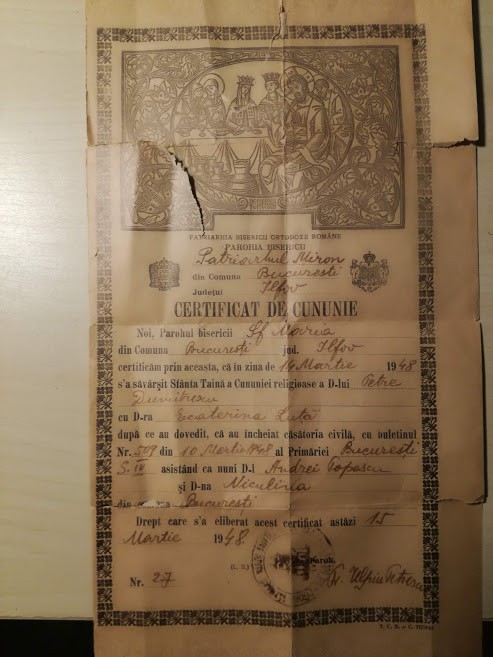 PATRIARHIA BISERICII ORTODOXE ROMÂNE
PAROHIA BISERICII
Patriarhul Miron
din Comuna Bucuresti
Județul Ilfov
CERTIFICAT DE CUNUNIE
Noi, Parohul bisericii Sf Maria
din Comuna Bucuresti jud. Ilfov
certificăm prin aceasta, că în ziua de 14 Martie 1948
s'a săvârșit Sfânta Taină a Cununiei religioase a D-lui Petre
Dumitrescu
cu D-ra Ecaterina Luță
după ce au dovedit, că au încheiat căsătoria civilă, cu buletinul
Nr. 509 din 10 Martie 1948 al Primăriei Bucuresti
S. IV asistând ca nuni D-l Andrei Popascu
și D-na Niculina
din comuna Bucuresti
Drept care s'a eliberat acest certificat astăzi 15
Martie 1948.
(L. S.) Paroh,
Nr. 27